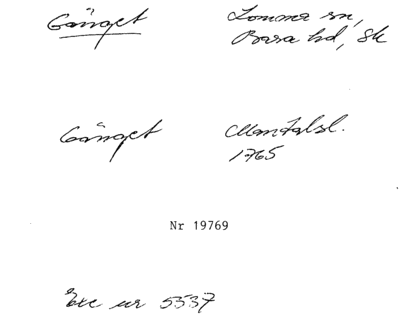 Gånget Lomma sn,
Bara hd, Sk
Gånget Mantalsl.
1765
Nr 19769
Exc nr 5537